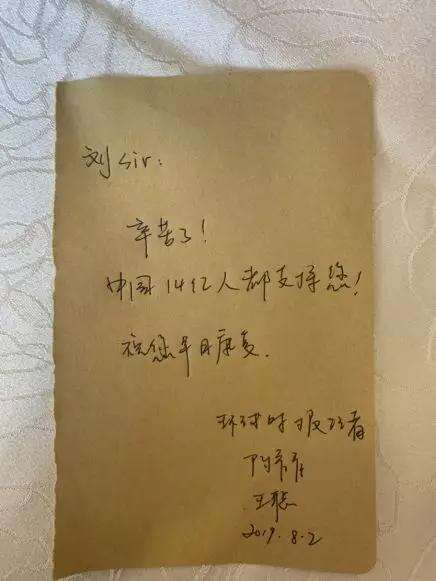 刘sir：
辛苦了！
中国14亿人都支持您！
祝您早日康复.
环球时报记者
王聪
2019.8.2